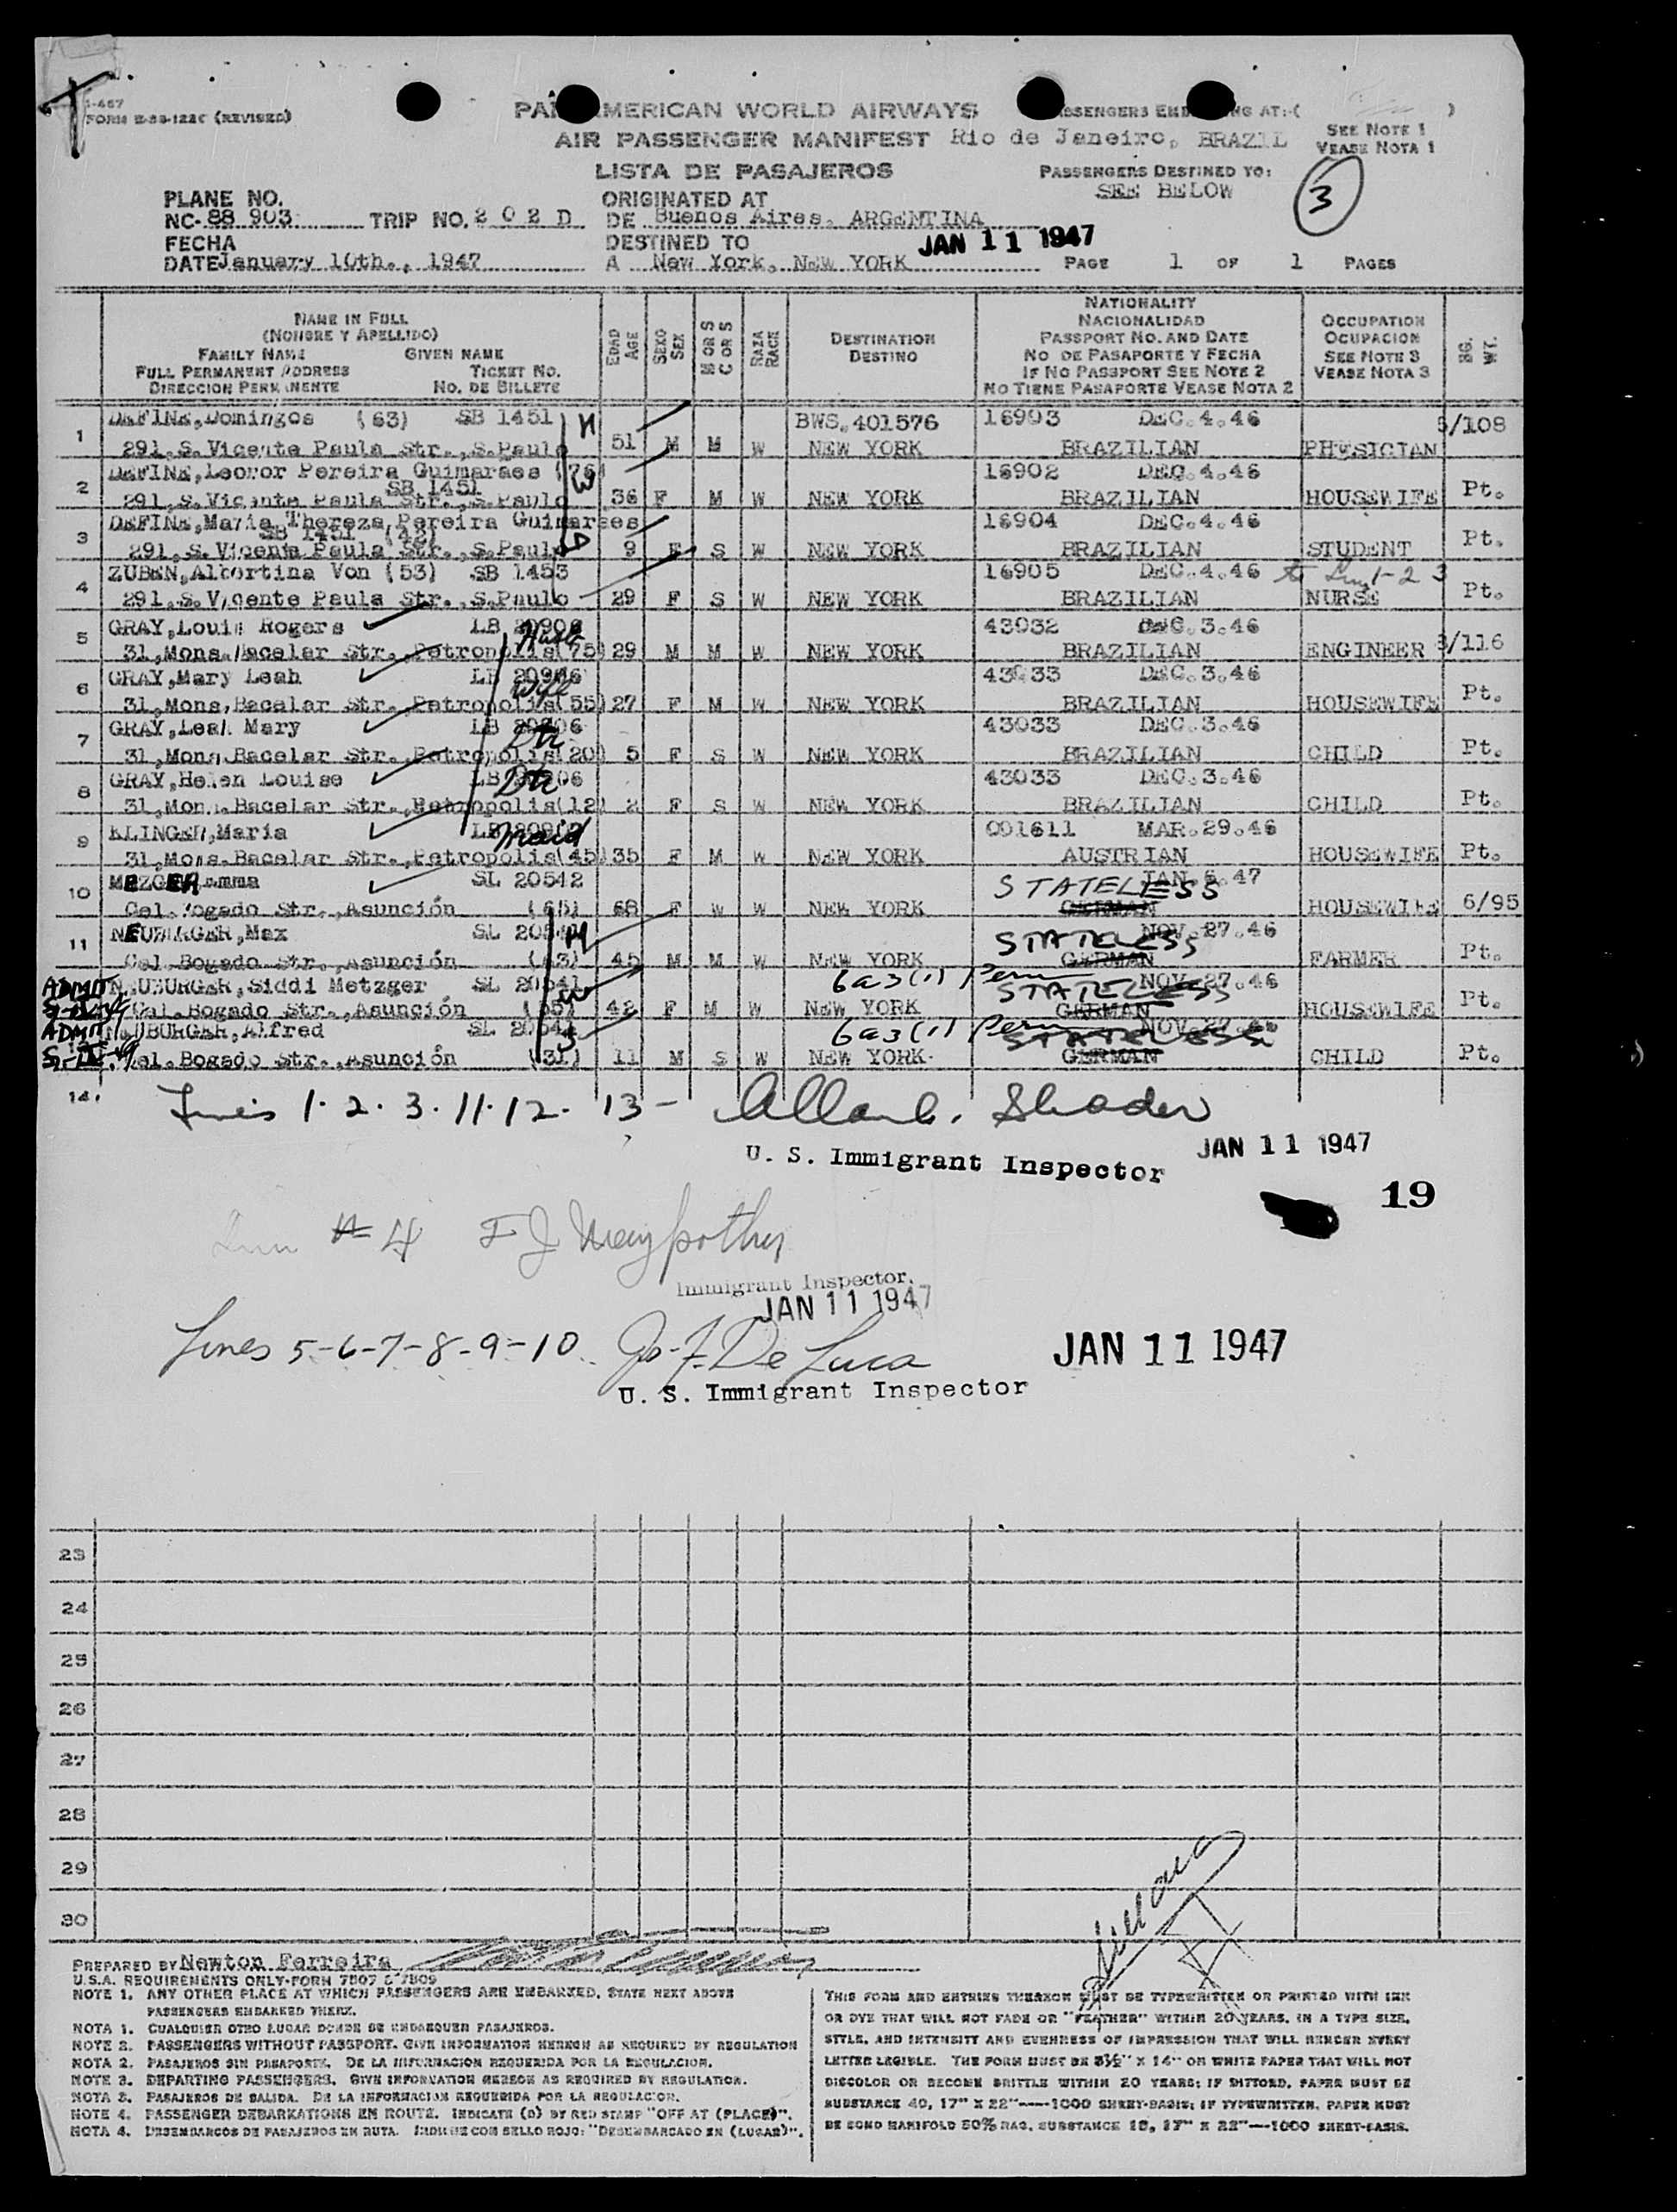 I-467
FORM E-28-122C (REVISED)
PAN AMERICAN WORLD AIRWAYS
AIR PASSENGER MANIFEST
LISTA DE PASAJEROS
PASSENGERS EMBARKING AT:-( )
Rio de Janeiro, BRAZIL
SEE NOTE 1
VEASE NOTA 1
PASSENGERS DESTINED TO:
SEE BELOW
3
PLANE NO.
NC- 88 903 TRIP NO. 2 0 2 D
ORIGINATED AT
DE Buenos Aires, ARGENTINA
FECHA
DATE January 10th., 1947
DESTINED TO
A New York, New YORK
JAN 11 1947
PAGE 1 OF 1 PAGES
NAME IN FULL
(NOMBRE Y APELLIDO)
FAMILY NAME GIVEN NAME
FULL PERMANENT ADDRESS TICKET NO.
DIRECCION PERMANENTE NO. DE BILLETE
EDAD AGE
SEXO SEX
M OR S C OR S
RAZA RACE
DESTINATION
DESTINO
NATIONALITY
NACIONALIDAD
PASSPORT NO. AND DATE
NO DE PASAPORTE Y FECHA
IF NO PASSPORT SEE NOTE 2
NO TIENE PASAPORTE VEASE NOTA 2
OCCUPATION
OCUPACION
SEE NOTE 3
VEASE NOTA 3
BG. WT.
1 DEFINE,Domingos (63) SB 1451 H BWS.401576 16903 DEC.4.46 /108
291,S.Vicente Paula Str.,S.Paulo 51 M M W NEW YORK BRAZILIAN PHYSICIAN
2 DEFINE,Leonor Pereira Guimaraes (76) W 16902 DEC.4.46
SB 1451
291,S.Vicente Paula Str.,S.Paulo 36 F M W NEW YORK BRAZILIAN HOUSEWIFE Pt.
3 DEFINE,Maria Thereza Pereira Guimaraes 16904 DEC.4.46
SB 1451 (42)
291,S.Vicente Paula Str.,S.Paulo D 9 F S W NEW YORK BRAZILIAN STUDENT Pt.
4 ZUBEN,Albertina Von (53) SB 1453 16905 DEC.4.46 to Lines 1-2 3
291,S.Vicente Paula Str.,S.Paulo 29 F S W NEW YORK BRAZILIAN NURSE Pt.
5 GRAY,Louis Rogers LB 20906 Husb 43032 DEC.3.46
31,Mons.Bacelar Str.,Petropolis(75) 29 M M W NEW YORK BRAZILIAN ENGINEER /116
6 GRAY,Mary Leah LB 20906 Wife 43033 DEC.3.46
31,Mons.Bacelar Str.,Petropolis(55) 27 F M W NEW YORK BRAZILIAN HOUSEWIFE Pt.
7 GRAY,Leah Mary LB 20906 Dtr 43033 DEC.3.46
31,Mons.Bacelar Str.,Petropolis(20) 5 F S W NEW YORK BRAZILIAN CHILD Pt.
8 GRAY,Helen Louise LB 20906 Dtr 43033 DEC.3.46
31,Mons.Bacelar Str.,Petropolis(12) 2 F S W NEW YORK BRAZILIAN CHILD Pt.
9 KLINGER,Maria maid 001611 MAR.29.46
31,Mons.Bacelar Str.,Petropolis(45) 35 F M W NEW YORK AUSTRIAN HOUSEWIFE Pt.
10 METZGER, Emma SL 20542 STATELESS JAN.6.47
Cal.Bogado Str.,Asunción (65) 68 F W W NEW YORK GERMAN HOUSEWIFE 6/95
11 NEUBURGER,Max SL 20541 H STATELESS NOV.27.46
Cal.Bogado Str.,Asunción (63) 45 M M W NEW YORK GERMAN FARMER Pt.
ADMIT NEUBURGER,Siddi Metzger SL 20541 W 6a3(1) Perm STATELESS NOV.27.46
Cal.Bogado Str.,Asunción (55) 42 F M W NEW YORK GERMAN HOUSEWIFE Pt.
ADMIT NEUBURGER,Alfred SL 20544 S 6a3(1) Perm STATELESS NOV.27.46
Cal.Bogado Str.,Asunción (31) 11 M S W NEW YORK GERMAN CHILD Pt.
14.
Lines 1. 2. 3. 11. 12. 13 -
U. S. Immigrant Inspector JAN 11 1947
19
Line # 4 F J
Immigrant Inspector.
JAN 11 1947
Lines 5-6-7-8-9-10 De Luca JAN 11 1947
U. S. Immigrant Inspector
23
24
25
26
27
28
29
30
PREPARED BY Newton Ferreira
U.S.A. REQUIREMENTS ONLY-FORM 7507 & 7509
NOTE 1. ANY OTHER PLACE AT WHICH PASSENGERS ARE EMBARKED, STATE NEXT ABOVE
PASSENGERS EMBARKED THERE.
NOTA 1. CUALQUIER OTRO LUGAR DONDE SE EMBARQUEN PASAJEROS.
NOTE 2. PASSENGERS WITHOUT PASSPORT. GIVE INFORMATION HEREON AS REQUIRED BY REGULATION
NOTA 2. PASAJEROS SIN PASAPORTE. DE LA INFORMACION REQUERIDA POR LA REGULACION.
NOTE 3. DEPARTING PASSENGERS. GIVE INFORMATION HEREON AS REQUIRED BY REGULATION.
NOTA 3. PASAJEROS DE SALIDA. DE LA INFORMACION REQUERIDA POR LA REGULACION.
NOTE 4. PASSENGER DEBARKATIONS EN ROUTE. INDICATE (D) BY RED STAMP "OFF AT (PLACE)".
NOTA 4. DESEMBARCOS DE PASAJEROS EN RUTA. INDIQUE CON SELLO ROJO: "DESEMBARCADO EN (LUGAR)".
THIS FORM AND ENTRIES THEREON MUST BE TYPEWRITTEN OR PRINTED WITH INK
OR DYE THAT WILL NOT FADE OR "FEATHER" WITHIN 20 YEARS, IN A TYPE SIZE,
STYLE, AND INTENSITY AND EVENNESS OF IMPRESSION THAT WILL RENDER EVERY
LETTER LEGIBLE. THE FORM MUST BE 8½" X 14" ON WHITE PAPER THAT WILL NOT
DISCOLOR OR BECOME BRITTLE WITHIN 20 YEARS; IF DITTOED, PAPER MUST BE
SUBSTANCE 40, 17" X 22"----1000 SHEET-BASIS; IF TYPEWRITTEN, PAPER MUST
BE BOND MANIFOLD 50% RAG, SUBSTANCE 18, 17" X 22"---1000 SHEET-BASIS.